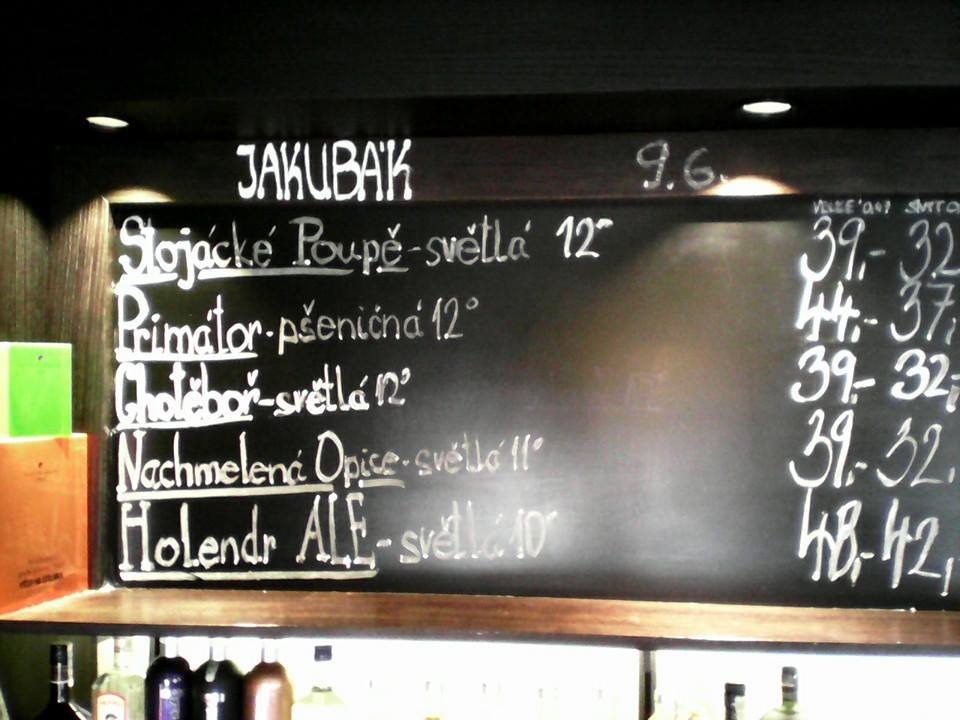 JAKUBÁK 9.6.
Stojácké Poupě-světlá 12° 39,- 32
Primátor-pšeničná 12° 44,- 37,
Chotěboř-světlá 12° 39,- 32,-
Nachmelená Opice-světlá 11° 39,- 32,
Holendr ALE-světlá 10° 48,- 42,